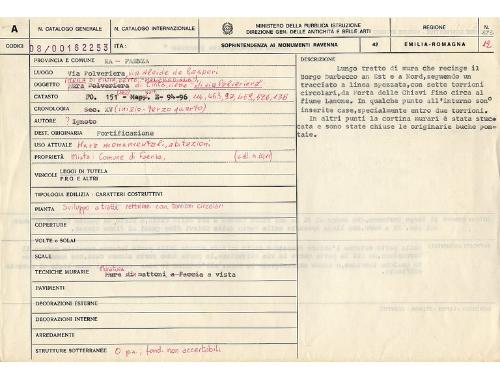 A
N. CATALOGO GENERALE
N. CATALOGO INTERNAZIONALE
MINISTERO DELLA PUBBLICA ISTRUZIONE
DIREZIONE GEN. DELLE ANTICHITÀ E BELLE ARTI
REGIONE
N.
CODICI
08/00162253
ITA:
SOPRINTENDENZA AI MONUMENTI RAVENNA
42
EMILIA-ROMAGNA
12
PROVINCIA E COMUNE RA - FAENZA
LUOGO Via Polveriera, via Alcide de Gasperi
OGGETTO Mura Polveriera di cinta, di via Polveriera
CATASTO FO. 151 Mapp. E- 94-96
CRONOLOGIA Sec. XV (inizio-terzo quarto)
AUTORE ? Ignoto
DEST. ORIGINARIA Fortificazione
USO ATTUALE Mura monumentali, abitazioni
PROPRIETÀ Mista: Comune di Faenza,
VINCOLI LEGGI DI TUTELA
P.R.G. E ALTRI
TIPOLOGIA EDILIZIA - CARATTERI COSTRUTTIVI
PIANTA Sviluppo a tratti rettilinei con torrioni circolari
COPERTURE
VOLTE o SOLAI
SCALE
TECNICHE MURARIE Muratura di mattoni a faccia a vista
PAVIMENTI
DECORAZIONI ESTERNE
DECORAZIONI INTERNE
ARREDAMENTI
STRUTTURE SOTTERRANEE fondi non accertabili
DESCRIZIONE
Lungo tratto di mura che recinge il
Borgo Durbecco an Est e a Nord, seguendo un
tracciato a linea spezzata, con sette torrioni
circolari, da Porta delle Chiavi fino circa al
fiume Lamone. In qualche punto all'interno son°
inserite case, specialmente entro due torrioni.
In altri punti la cortina murari è stata stuc
cata e sono state chiuse le originarie buche pon
taie.